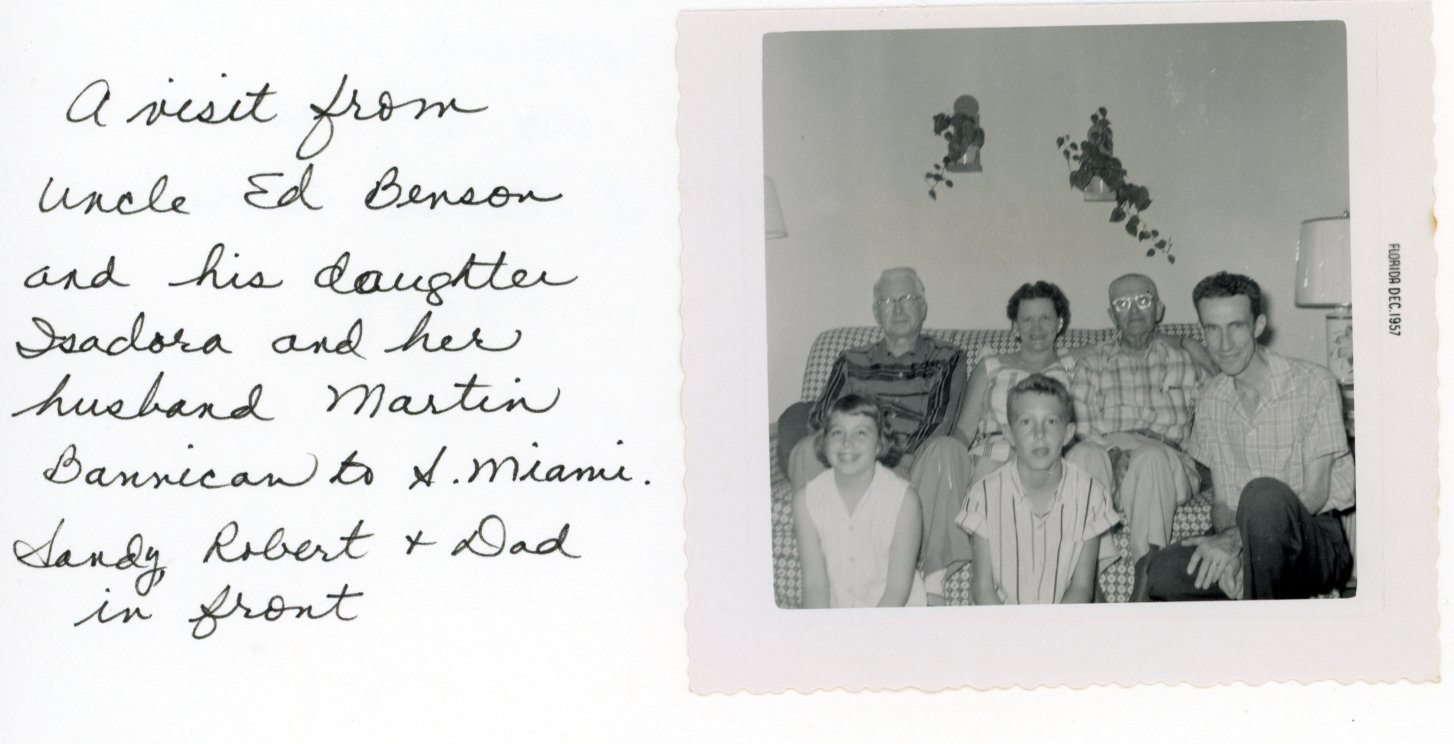 A visit from
Uncle Ed Benson
and his daughter
Isadora and her
husband Martin
Bannican to S. Miami.
Sandy, Robert + Dad
in front
FLORIDA DEC. 1957